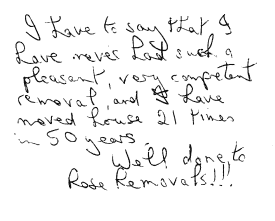 I have to say that I
have never had such a
pleasant, very competent
removal, and I have
moved house 21 times
in 50 years.
Well done to
Rose Removals!!!